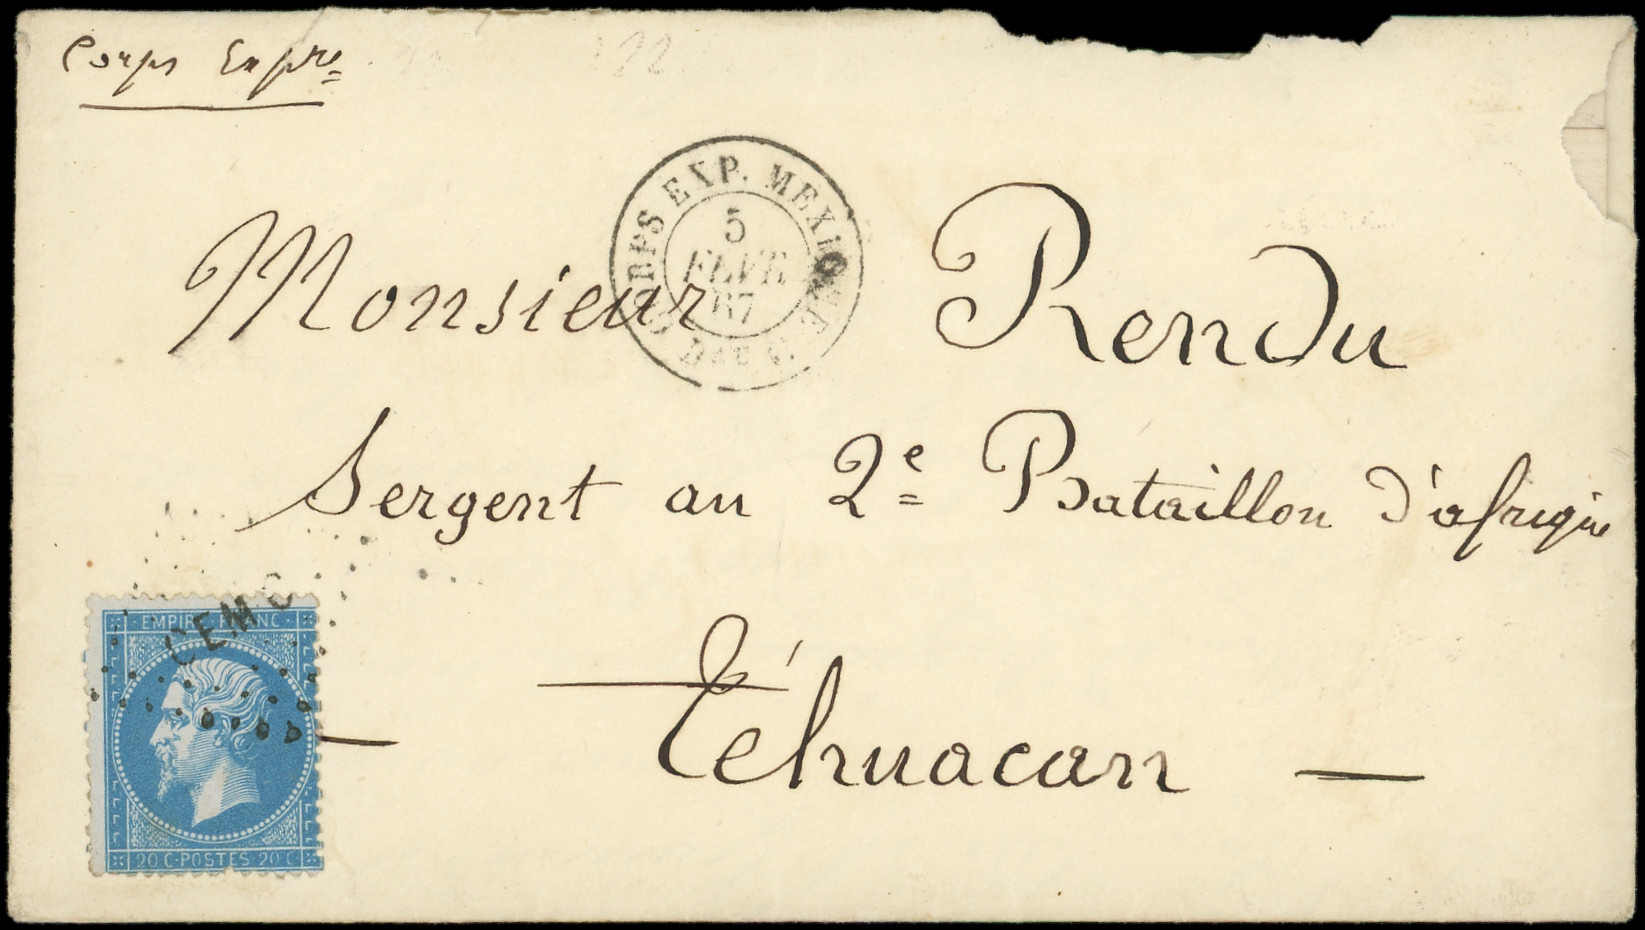 Corps Expre
CORPS EXP. MEXIQUE
5
FEVR
67
Monsieur Rendu
Sergent au 2e Bataillon d'afrique
Téhuacan
CEM
EMPIRE FRANC
20 C·POSTES·20 C